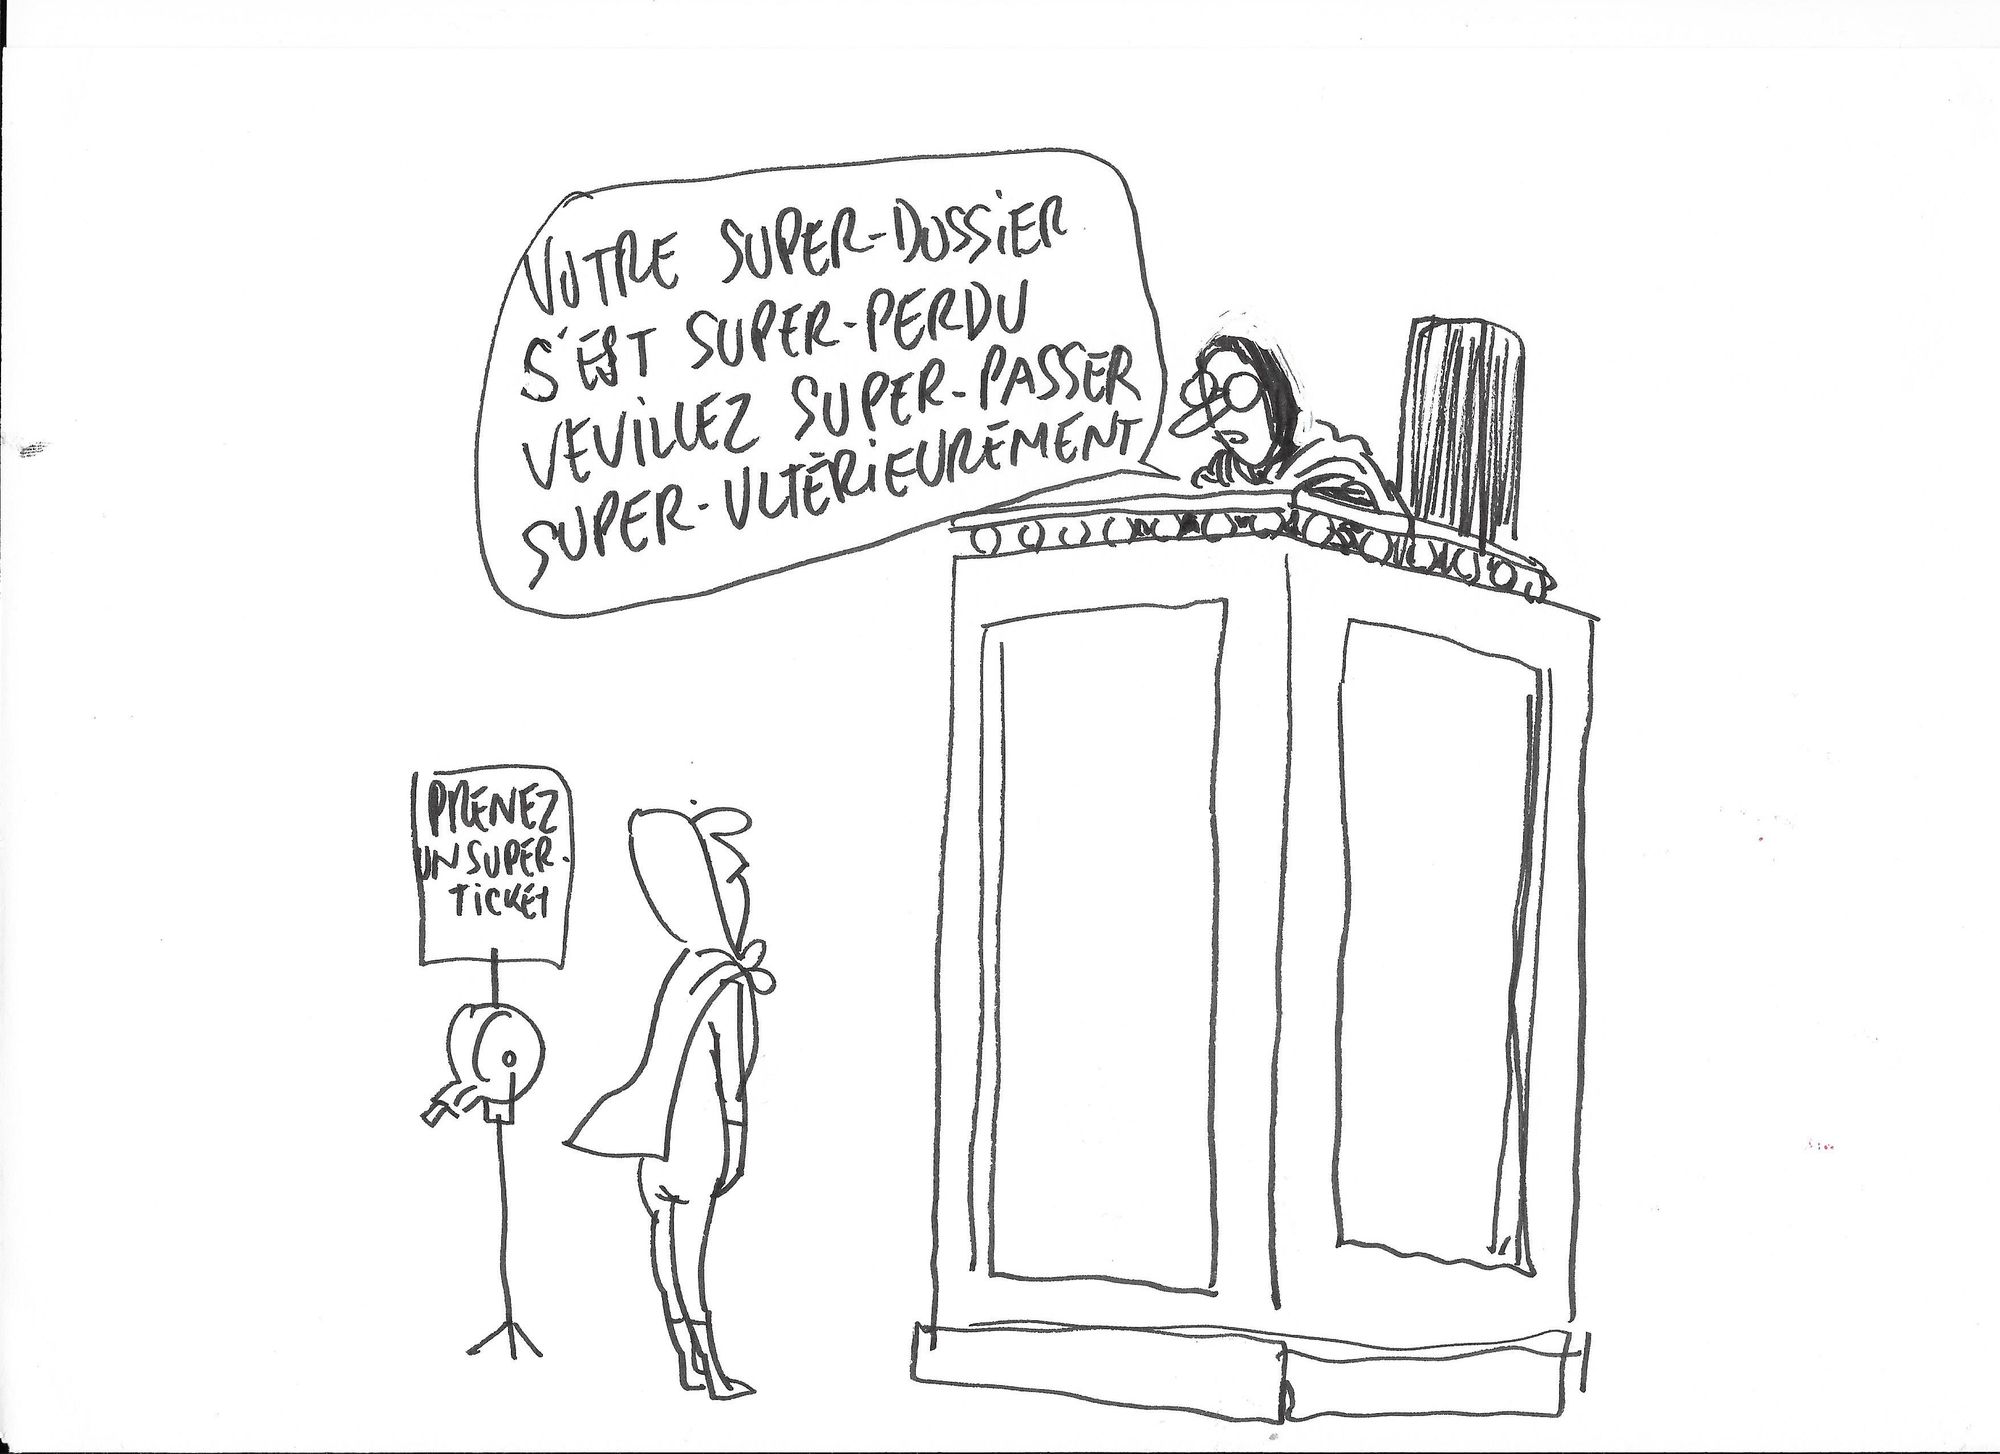 VOTRE SUPER-DOSSIER
S'EST SUPER-PERDU
VEUILLEZ SUPER-PASSER
SUPER-ULTÉRIEUREMENT
PRENEZ
UN SUPER-
TICKET